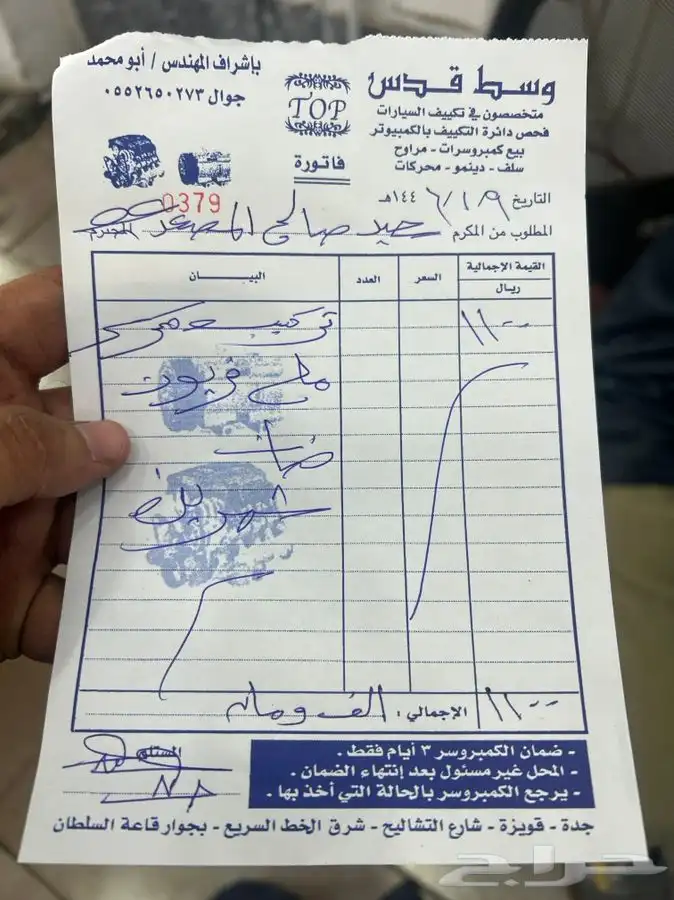 وسط قدس
متخصصون في تكييف السيارات
فحص دائرة التكييف بالكمبيوتر
بيع كمبروسرات - مراوح
سلف - دينمو - محركات
TOP
فاتورة
بإشراف المهندس / أبو محمد
جوال ٠٥٥٢٦٥٠٢٧٣
0379
التاريخ ٩ / ١ / ١٤٤٦هـ
المطلوب من المكرم صالح المحترم
القيمة الإجمالية السعر العدد البيـــان
ريـال
١١٠٠ تركيب
ملي فريون
ضمان
شهرين
الإجمالي : الف ومائه ١١٠٠
المستلم
- ضمان الكمبروسر ٣ أيام فقط .
- المحل غير مسئول بعد إنتهاء الضمان .
- يرجع الكمبروسر بالحالة التي أخذ بها .
جدة - قويزة - شارع التشاليح - شرق الخط السريع - بجوار قاعة السلطان
حراج